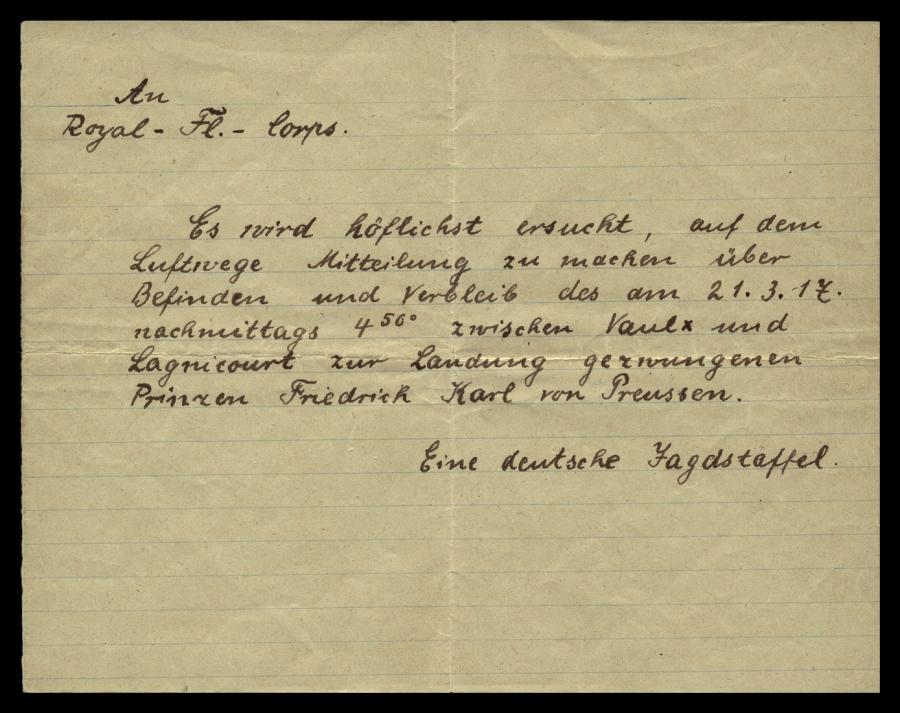 An
Royal - Fl. - Corps.
Es wird höflichst ersucht, auf dem
Luftwege Mitteilung zu machen über
Befinden und Verbleib des am 21. 3. 17.
nachmittags 4⁵⁰° zwischen Vaulx und
Lagnicourt zur Landung gezwungenen
Prinzen Friedrich Karl von Preussen.
Eine deutsche Jagdstaffel.